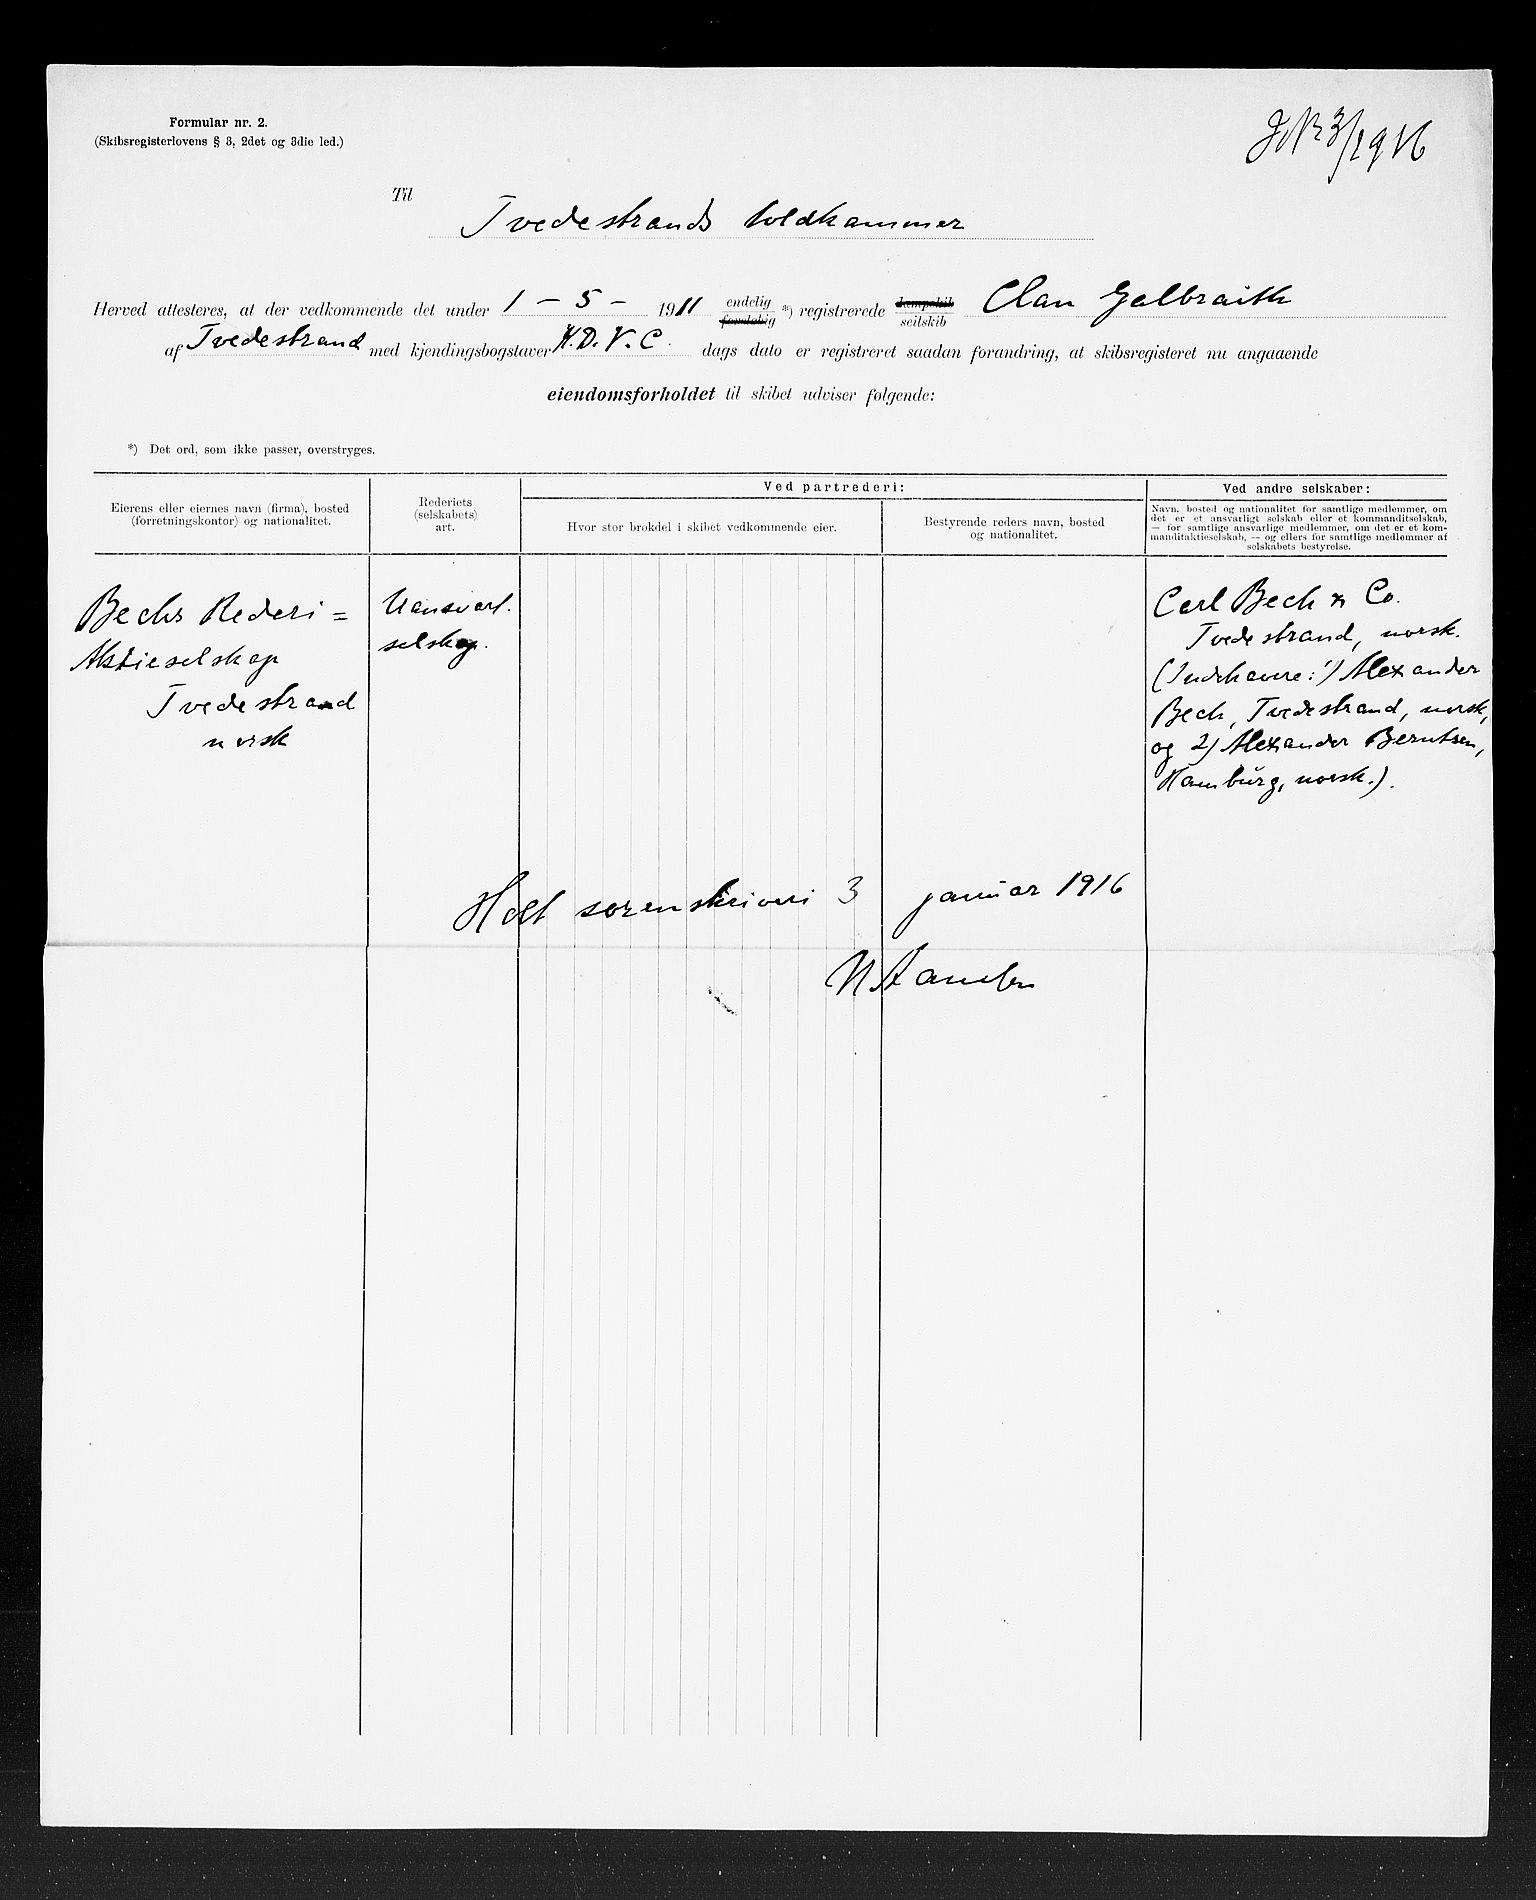 Formular nr. 2.
(Skibsregisterlovens § 3, 2det og 3die led.)
JNR 3/1916
Til
Tvedestrands toldkammer
Herved attesteres, at der vedkommende det under 1 – 5 – 1911 endelig foreløbig *) registrerede dampskib seilskib Clan Galbraith
af Tvedestrand med kjendingsbogstaver H.D.V.C. dags dato er registreret saadan forandring, at skibsregisteret nu angaaende
eiendomsforholdet til skibet udviser følgende:
*) Det ord, som ikke passer, overstryges.
Eierens eller eiernes navn (firma), bosted
(forretningskontor) og nationalitet.
Rederiets
(selskabets)
art.
Ved partrederi:
Hvor stor brøkdel i skibet vedkommende eier.
Bestyrende reders navn, bosted
og nationalitet.
Ved andre selskaber:
Navn, bosted og nationalitet for samtlige medlemmer, om
det er et ansvarligt selskab eller et kommanditselskab,
— for samtlige ansvarlige medlemmer, om det er et kom-
manditaktieselskab, — og ellers for samtlige medlemmer af
selskabets bestyrelse.
Bechs Rederi=
Aktieselskap
Tvedestrand
norsk
Uansvarl.
selskap.
Carl Bech & Co.
Tvedestrand, norsk.
(Indehavere: 1) Alexander
Bech, Tvedestrand, norsk,
og 2) Alexander Berntsen,
Hamburg, norsk.).
Holt sorenskriveri 3 januar 1916